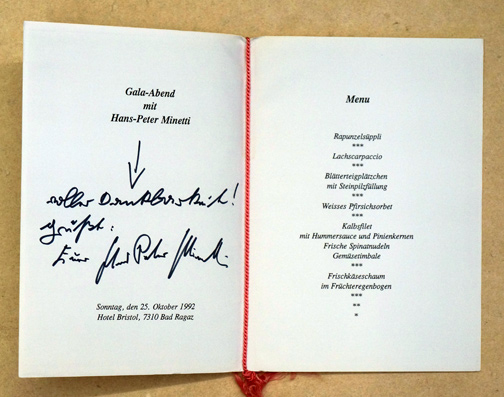 Gala-Abend
mit
Hans-Peter Minetti
voller Dankbarkeit!
grüßt:
Euer Hans Peter Minetti
Sonntag, den 25. Oktober 1992
Hotel Bristol, 7310 Bad Ragaz
Menu
Rapunzelsüppli
***
Lachscarpaccio
***
Blätterteigplätzchen
mit Steinpilzfüllung
***
Weisses Pfirsichsorbet
***
Kalbsfilet
mit Hummersauce und Pinienkernen
Frische Spinatnudeln
Gemüsetimbale
***
Frischkäseschaum
im Früchteregenbogen
***
**
*